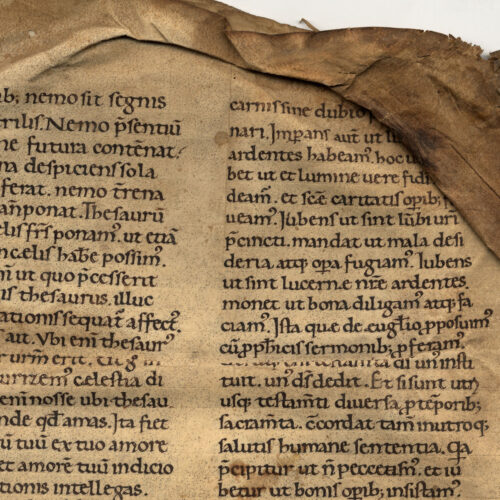 ib; nemo sit segnis
rilis. Nemo p̄sentiū
ne futura contēnat.
na despiciens sola
ferat. nemo t̄rena
am̄ponat. Thesaurū
elis frs̄ ponam᷒. ut etiā
nc.elis hab̄e possim᷒.
m̄ ut quo p̄cesserit
is thesaurus. illuc
ationis sequat̄ affect᷒.
s ait. Vbi eni᷒ thesaur᷒
r urm̄ erit.
urizem᷒ celestia di
eni᷒ nosse ubi thesau
nde qd̄ amas. Ita fiet
ū tuū ex tuo amore
et amorē tuū indicio
tionis intellegas.
carnis sine dubio
nari. Imp̄ans aut̄ ut lu
ardentes habeam᷒. hoc iu
bet ut et lumine uere fidi
deam᷒. et sc̄e caritatis op̄ib;
ueam᷒. Iubens ut sint lūbi urī
p̄cincti. mandat ut mala desi
deria. atq; op̄a fugiam᷒. Iubens
ut sint lucerne nr̄e ardentes.
monet ut bona diligam᷒ atq; fa
ciam᷒. Ista que de euḡlio p̄posuim᷒
cū p̄ph̄icis sermonib; p̄feram᷒.
testamta di un᷒ insti
tuit. un᷒ ds̄ dedit. Et si sunt utri
usq; testam̄ti diuersa p̄ temp̄orib;
sacram̄ta. c̄cordat tam̄ in utroq;
salutis humane sententia. Q̄a
p̄cipitur ut n̄ peccem᷒. et iu
betur ut bonis op̄ib; insistam᷒.